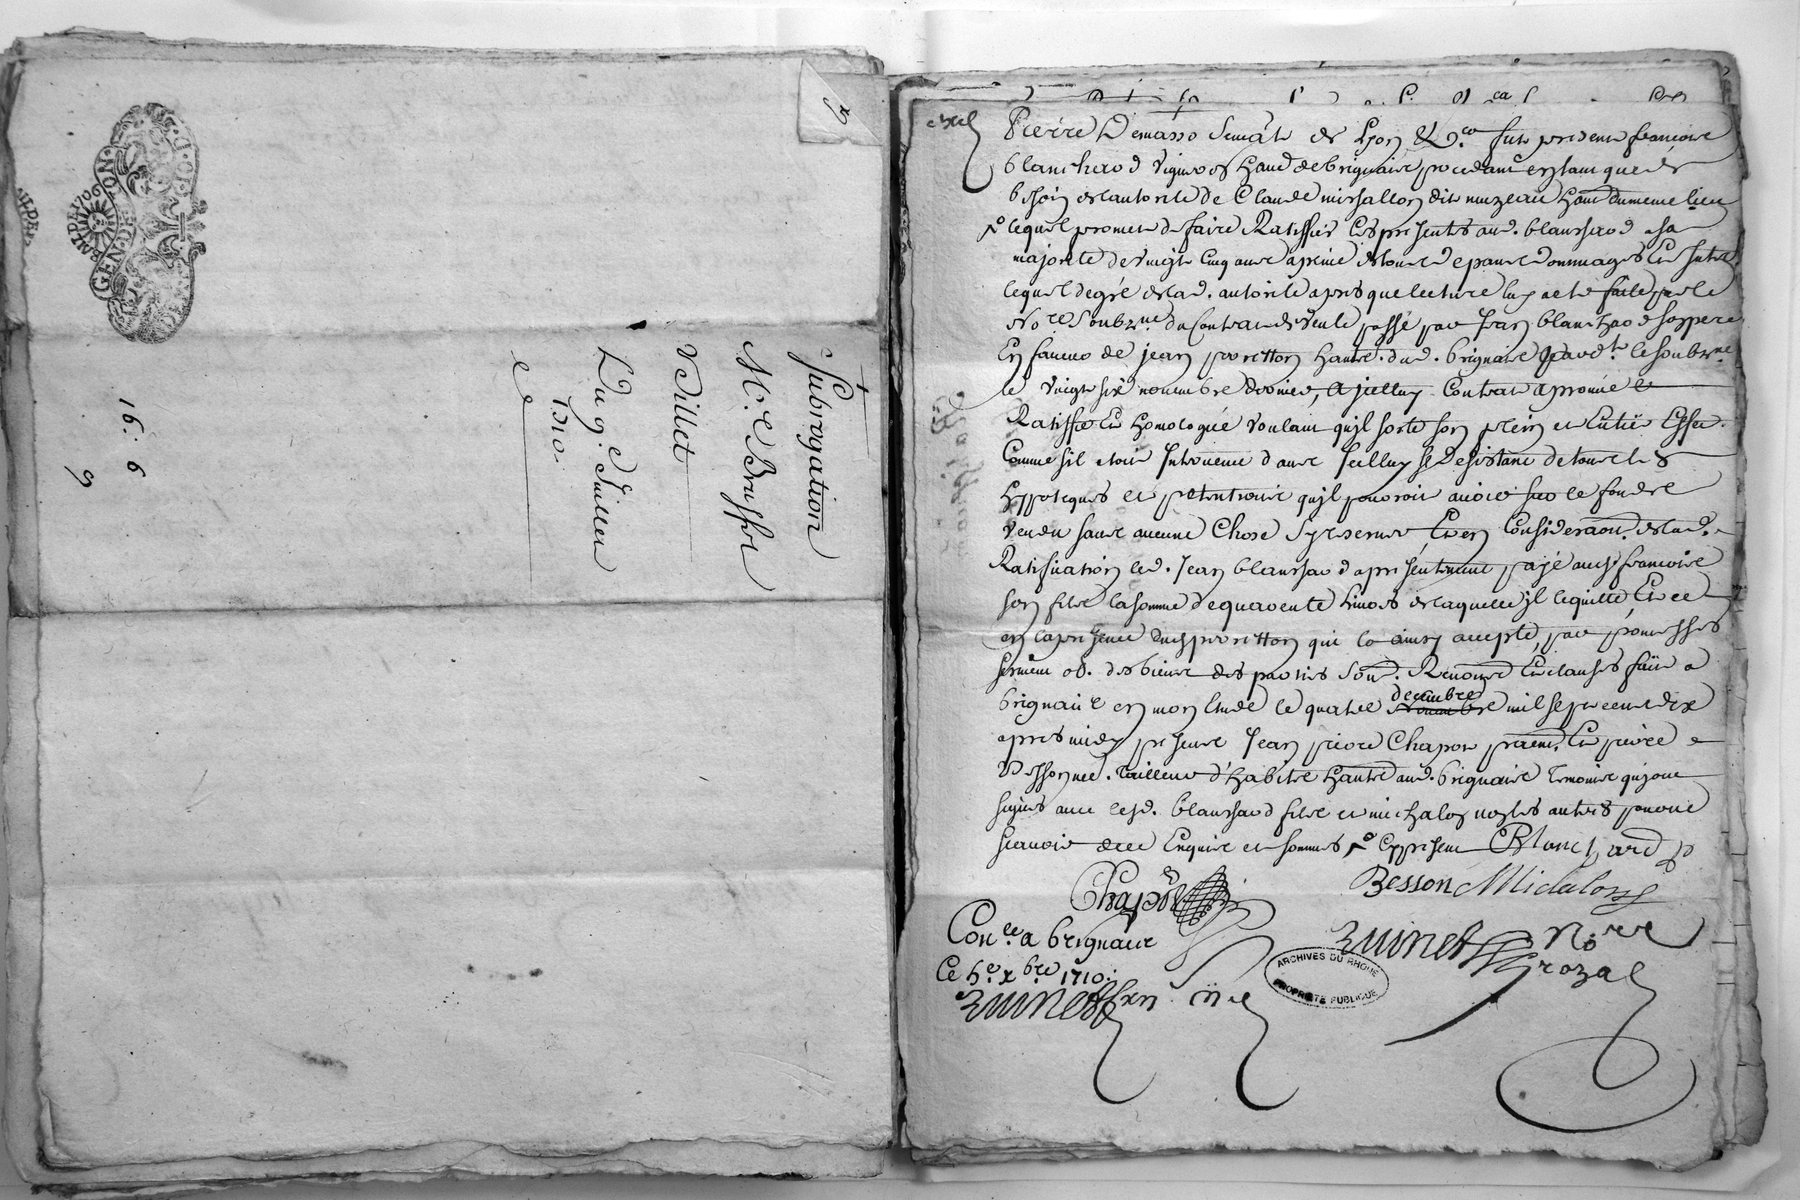 Subrogation
Mr. Brossol
Villet
Du 9e Juillet
1710.
16: 6
9
GEN. DE LYON
Pierre Demasso Senat de Lyon & fut present francois
blanchard vigneron habt de brignaire procedant en tant que de
besoin de lautorité de Claude michallon dit muzeau habt du meme lieu
lequel promet de faire Ratiffier les presentes aud. blanchard a sa
majorité de vingt cinq ans a peine de tous depans dommages Et Intr
lequel de gré de lad. autorité apres que lecture luy a eté faite par le
Nore. Soubzne du Contrat de vente passé par Jean blanchard son pere
En faveur de jean poritton habt dud. brignaire pardt. le soubzne
le vingt six novembre dernier, a jcelluy Contrat aprouvé
Ratiffié Et Homologué voulant qujl sorte son plein et Entier Effet
Comme sil etoit Intervenu dans jcelluy se Desistant de toutes
hyppoteques et pretentions qujl pouvoit avoir sur le fondz
vendu sans aucune Chose sy reserver Et en Consideraon. de lad.
Ratification led. Jean blanchard a presentement payé aud. francois
son fils la somme de quarente livres de laquelle jl le quitte Et ce
en la presence dud poritton qui la ainsy accepté, par promesses
serment ob. des biens des parties Soum. Renonc Et clauses fait a
brignaire en mon Etude le quatre decembre mil sept cent dix
apres midy presents Jean pierre Chapon praticn. Et pierre
Besson mre. tailleur d'habits habts aud. brignaire temoins qujont
signés avec lesd. blanchard fils et michalon non les autres pour ne
scavoir de ce Enquis et sommés Blanchard
Chapon
Besson Michalon
Conlé a brignaire
Ce 4e xbre 1710.
Zuinet Nore
Grozal
Zuinet
ARCHIVES DU RHONE
PROPRIÉTÉ PUBLIQUE